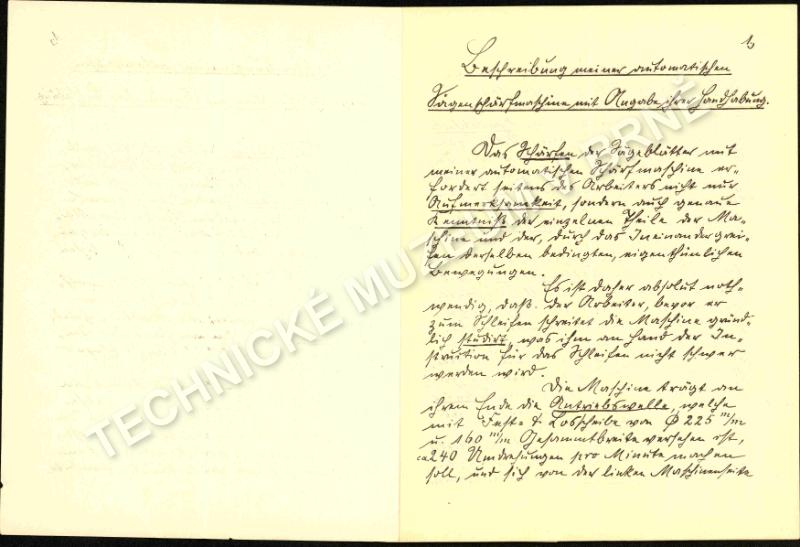 1.
Beschreibung meiner automatischen
Sägenschärfmaschine mit Angabe ihrer Handhabung.
Das Schärfen der Sägeblätter mit
meiner automatischen Schärfmaschine er-
fordert seitens des Arbeiters nicht nur
Aufmerksamkeit, sondern auch genaue
Kenntniß der einzelnen Theile der Ma-
schine und der, durch das Ineinandergrei-
fen derselben bedingten, eigenthümlichen
Bewegungen.
Es ist daher absolut noth-
wendig, daß der Arbeiter, bevor er
zum Schleifen schreitet die Maschine gründ-
lich studirt, was ihm an Hand der In-
struction für das Schleifen nicht schwer
werden wird.
Die Maschine trägt an
ihrem Ende die Antriebswelle, welche
mit Fest- & Losscheibe von Φ 225 m/m
u. 160 m/m Gesammtbreite versehen ist,
ca 240 Umdrehungen pro Minute machen
soll, und sich von der linken Maschinenseite
TECHNICKÉ MUZEUM V BRNĚ